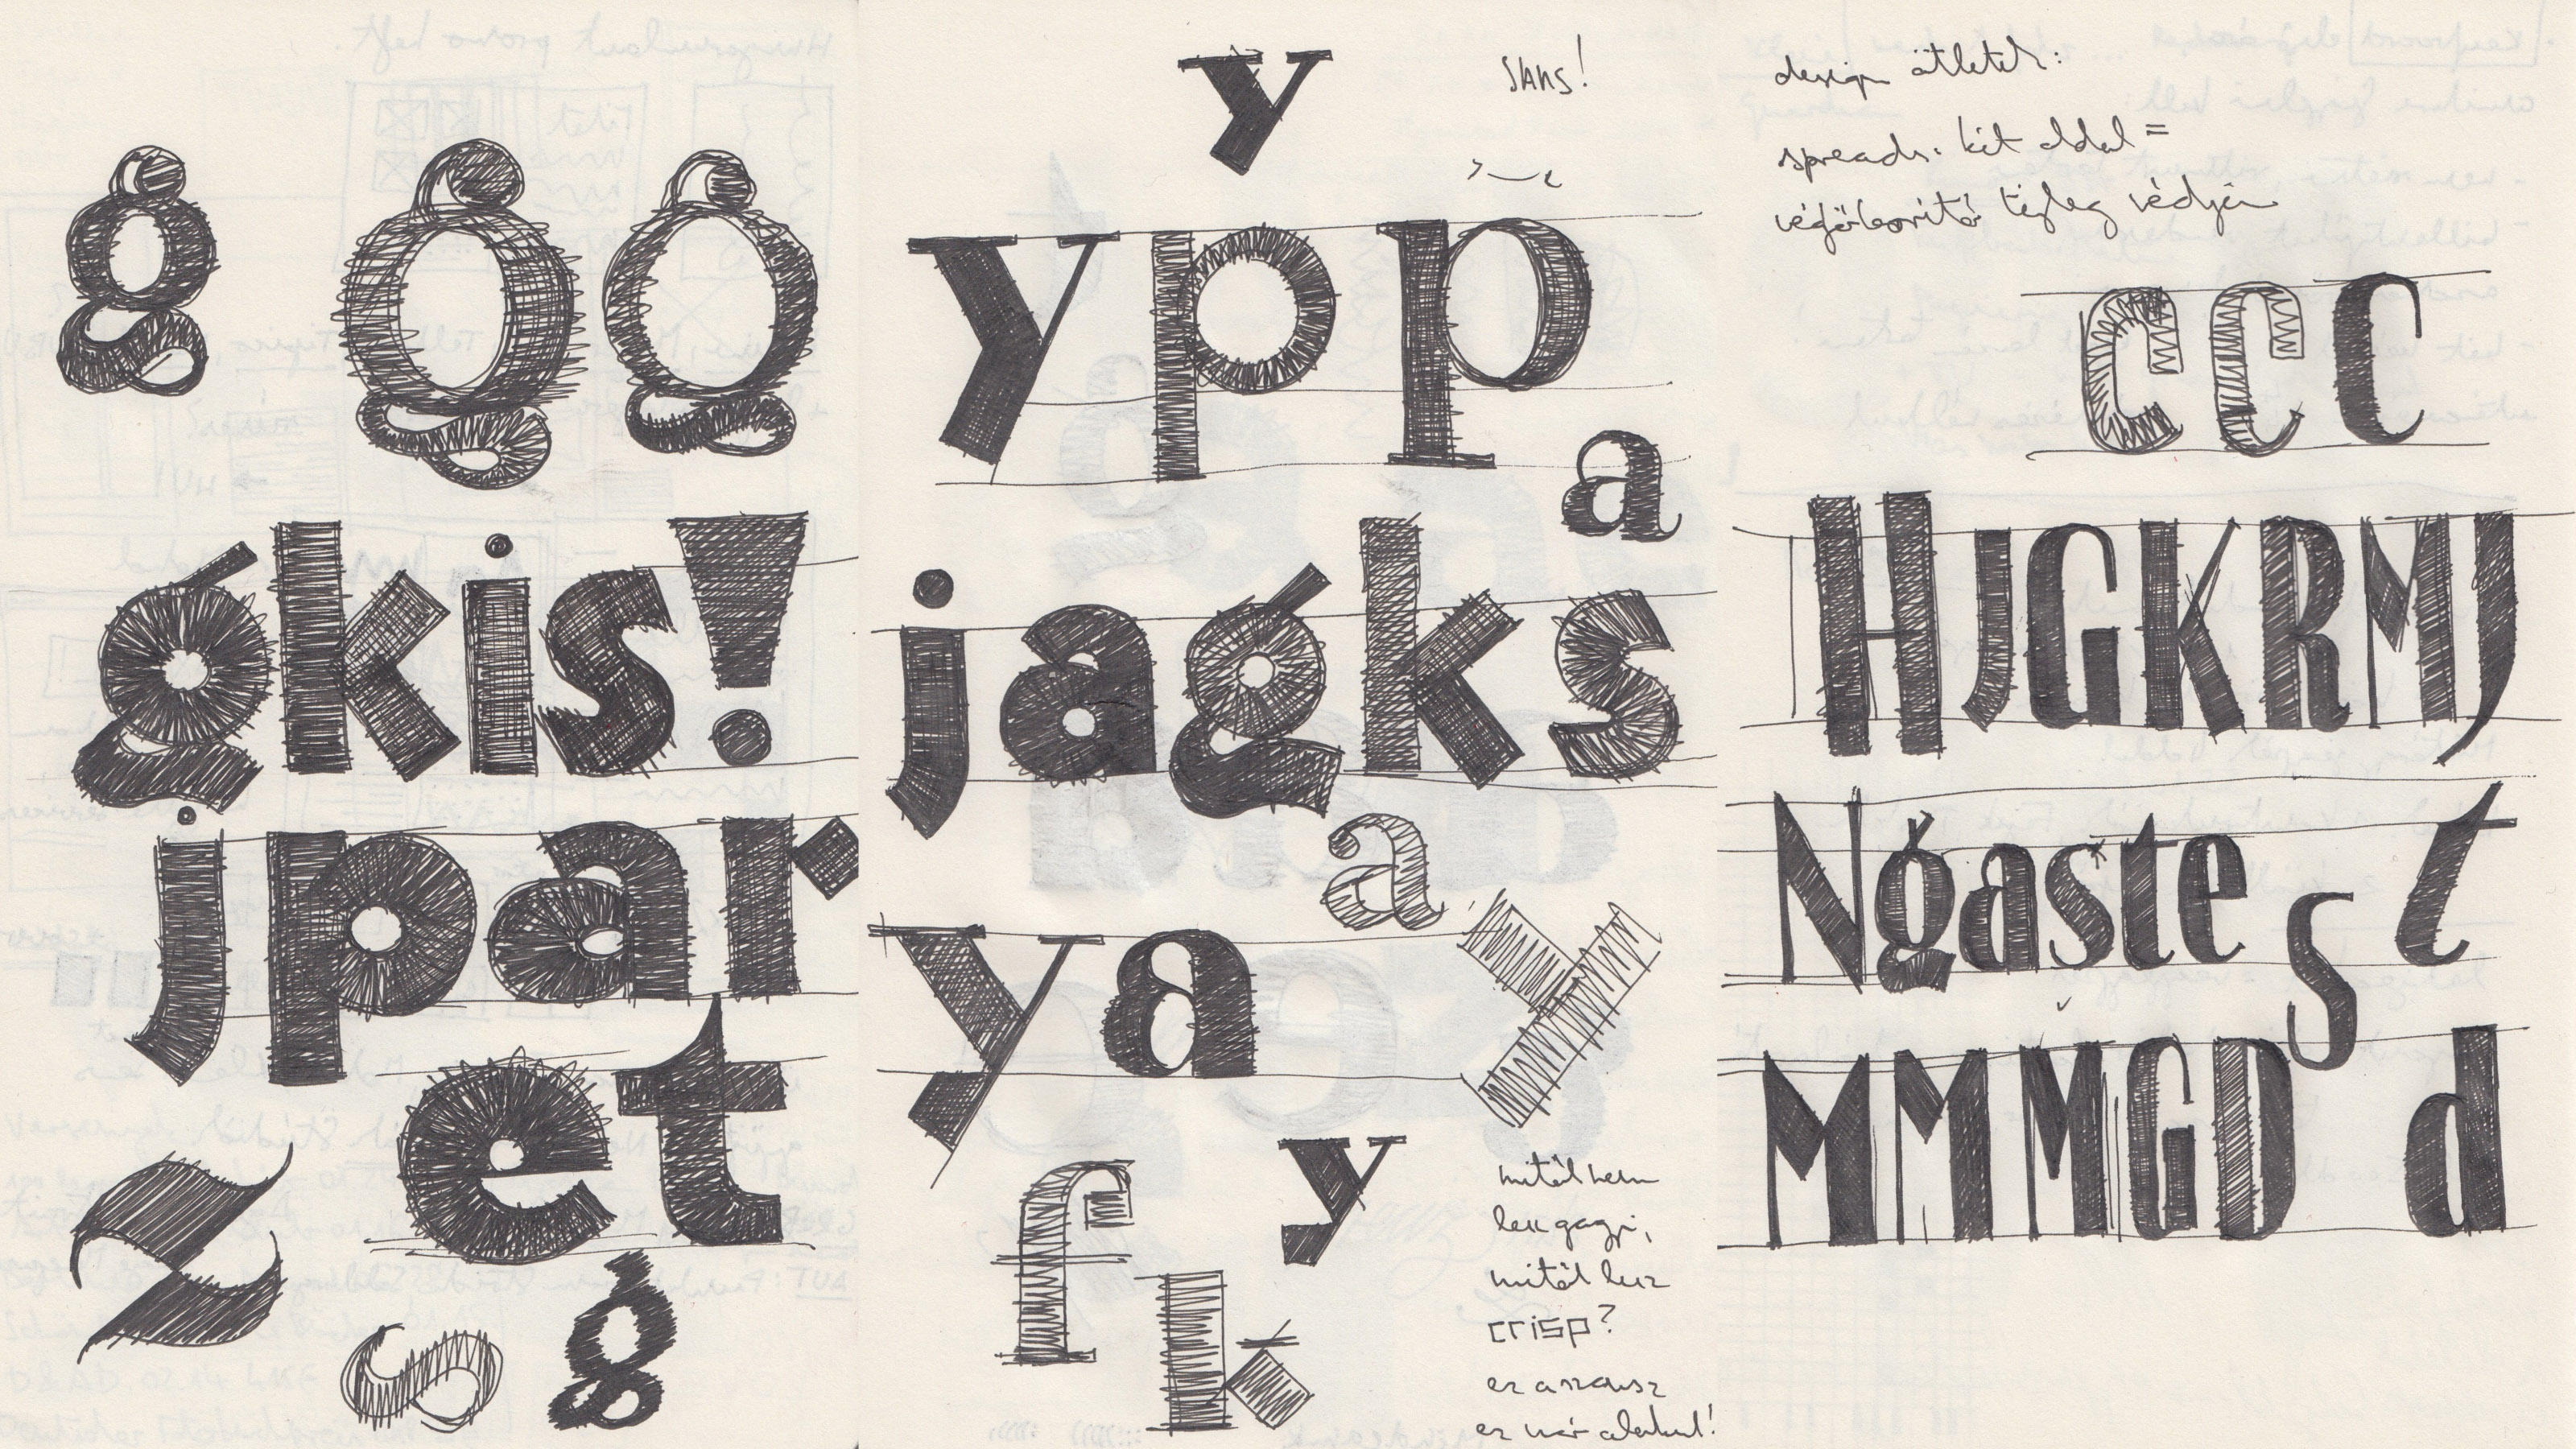 g g g
gkis!
jpar
et
z
g
y
SANS!
ypp
a
jagks
a
ya
y
y
f
k
mitől nem
lesz gagyi,
mitől lesz
crisp?
ez a szansz
ez már alakul!
design ötletek:
spreads: két oldal =
végfelborító tényleg védjen
c c c
HJGKRMJ
Ngaste
s
t
MMMGD
d